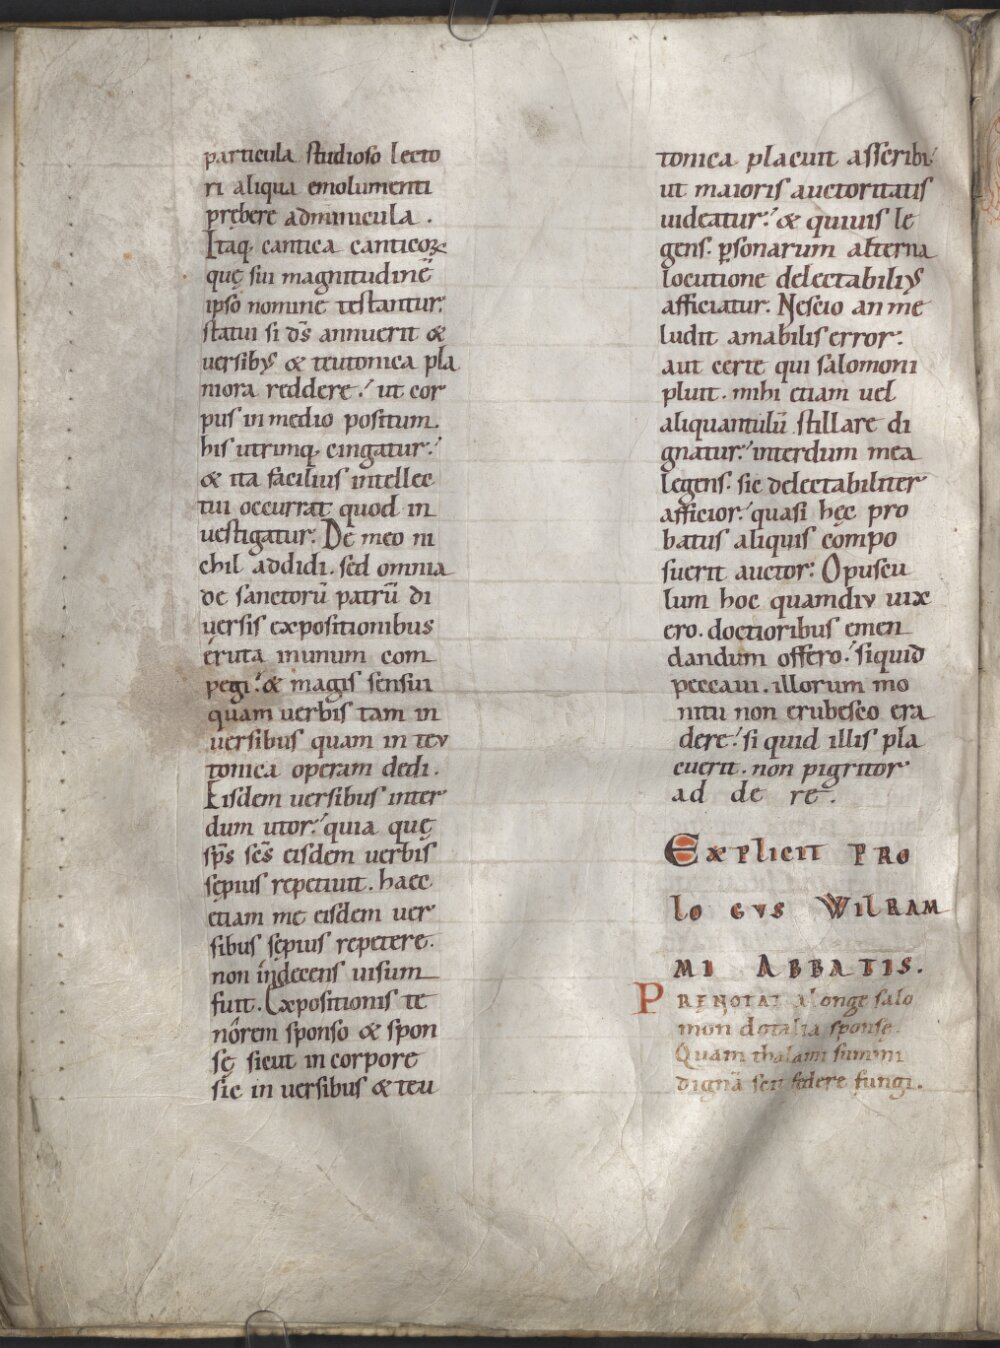 particula studioso lecto
ri aliqua emolumenti
prębere adminicula.
Itaq; cantica canticoꝝ
quę sui magnitudinē
ipso nomine testantur.
statui si dn̄s annuerit &
versibꝰ & teutonica pla
niora reddere. ut cor
pus in medio positum.
his utrimq; cingatur.
& ita facilius intellec
tui occurrat quod in
vestigatur. De meo ni
chil addidi. sed omnia
de sanctorū patrū di
versis expositionibus
eruta in unum com
pegi. & magis sensui
quam verbis tam in
versibus quam in tev
tonica operam dedi.
Eisdem versibus inter
dum utor. quia quę
sp̄s sc̄s eisdem verbis
sępius repetiuit. haec
etiam me eisdem ver
sibus sępius repetere.
non indecens uisum
fuit. Expositionis te
norem sponso & spon
sę sicut in corpore
sic in uersibus & teu
tonica placuit asscribi.
ut maioris auctoritatis
uideatur. & quiuis le
gens. ꝑsonarum alterna
locutione delectabiliꝰ
afficiatur. Nescio an me
ludit amabilis error.
aut certe qui salomoni
pluit. mihi etiam uel
aliquantulū stillare di
gnatur. interdum mea
legens. sic delectabiliter
afficior. quasi hęc pro
batus aliquis compo
suerit auctor. Opuscu
lum hoc quamdiv uixe
ero. doctioribus emen
dandum offero. siquid
peccaui. illorum mo
nitu non erubesco era
dere. si quid illis pla
cuerit. non pigritor
ad de re.
Explicit PRO
lo GVS WilRAM
MI ABBATIS.
PRENOTAT a longe salo
mon dotalia sponsę.
Quam thalami summi
dignā scit fędere fungi.